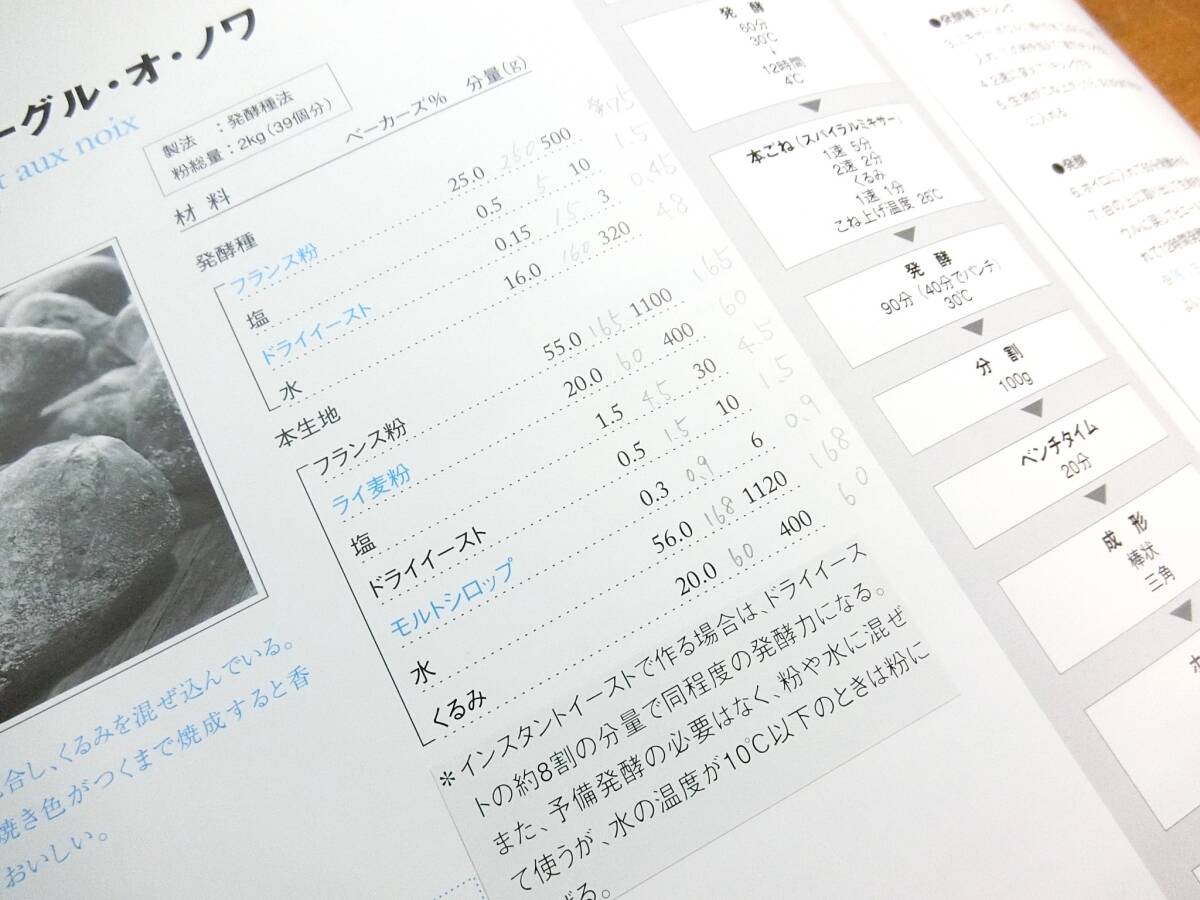 ーグル・オ・ノワ
t aux noix
製法 ：発酵種法
粉総量：2kg（39個分）
材 料 ベーカーズ% 分量(g)
発酵種
フランス粉 25.0 260 500 75
塩 0.5 5 10 1.5
ドライイースト 0.15 1.5 3 0.45
水 16.0 160 320 48
本生地
フランス粉 55.0 165 1100 165
ライ麦粉 20.0 60 400 60
塩 1.5 4.5 30 4.5
ドライイースト 0.5 1.5 10 1.5
モルトシロップ 0.3 0.9 6 0.9
水 56.0 168 1120 168
くるみ 20.0 60 400 60
＊インスタントイーストで作る場合は、ドライイース
トの約8割の分量で同程度の発酵力になる。
また、予備発酵の必要はなく、粉や水に混ぜ
て使うが、水の温度が10℃以下のときは粉に
合し、くるみを混ぜ込んでいる。
焼き色がつくまで焼成すると香
おいしい。
発 酵
60分
30℃
↓
12時間
4℃
本ごね（スパイラルミキサー）
1速 5分
2速 2分
くるみ
1速 1分
こね上げ温度 26℃
発 酵
90分（40分でパンチ）
30℃
分 割
100g
ベンチタイム
20分
成 形
棒状
三角
ホ
●発酵種ミキシング
●発酵